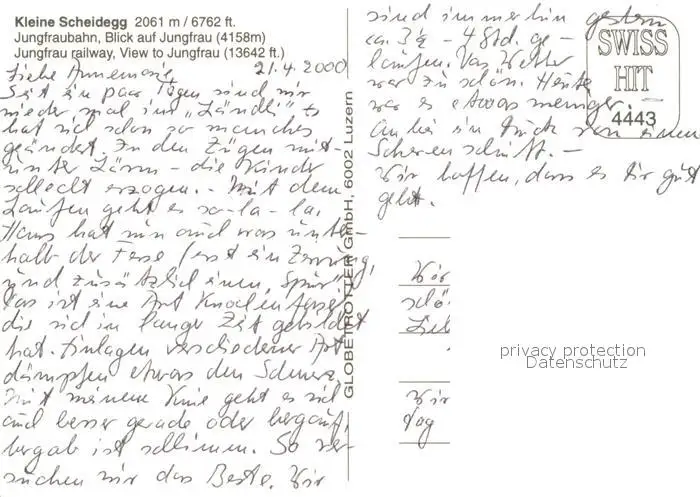 Kleine Scheidegg 2061 m / 6762 ft.
Jungfraubahn, Blick auf Jungfrau (4158m)
Jungfrau railway, View to Jungfrau (13642 ft.)
Liebe Annemarie 21.4.2000
Seit ein paar Tagen sind wir
wieder mal im "Ländli" es
hat sich schon so manches
geändert. In den Zügen mit-
unter Lärm - die Kinder
schlecht erzogen. - Mit dem
Laufen geht es so-la-la.
Hans hat nun auch was unter-
halb der Ferse (erst ein Zerrung,
und zusätzlich einen "Sporn"
Das ist eine Art Knochen
die sich in langer Zeit gebildet
hat. Einlagen verschiedener Art
dämpfen etwas den Schmerz.
Mit meinem Knie geht es sich
auch besser gerade oder bergauf,
bergab ist schlimm. So ver-
suchen wir das Beste. Wir
sind immerhin gestern
ca. 3½ - 4 Std. ge-
laufen. Das Wetter
war zu schön. Heute
war es etwas weniger. -
Anbei ein Stück von einem
Scherenschnitt. -
Wir hoffen, dass es Dir gut
geht.
Wir
schö
Lieb
Wir
Tag
GLOBETROTTER GmbH, 6002 Luzern
SWISS
HIT
4443
privacy protection
Datenschutz